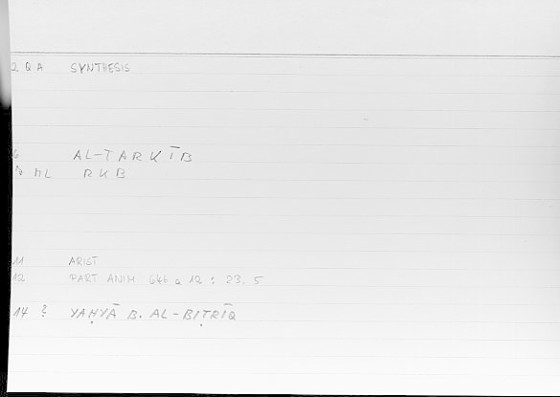 2 Q A SYNTHESIS
6 AL-TARKĪB
ML RKB
11 ARIST
12 PART ANIM 646 a 12 : 23.5
14 ? YAḤYĀ B. AL-BIṬRĪQ